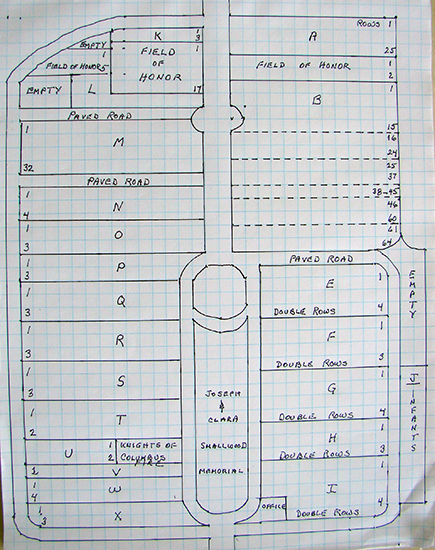 K
1
3
EMPTY
1
FIELD OF HONOR 5
FIELD
OF
HONOR
1
17
EMPTY
L
PAVED ROAD
1
M
32
PAVED ROAD
1
N
4
1
O
3
1
P
3
1
Q
3
1
R
3
1
S
3
1
T
2
U
1 KNIGHTS OF
2 COLUMBUS
1
V
2
1
W
4
1
X
3
ROWS 1
A
25
FIELD OF HONOR
1
2
B
1
15
16
24
25
37
38-45
46
60
61
64
PAVED ROAD
E
1
4
DOUBLE ROWS
F
1
3
DOUBLE ROWS
G
1
4
DOUBLE ROWS
H
1
3
DOUBLE ROWS
I
1
4
DOUBLE ROWS
OFFICE
JOSEPH
&
CLARA
SMALLWOOD
MEMORIAL
EMPTY
J INFANTS